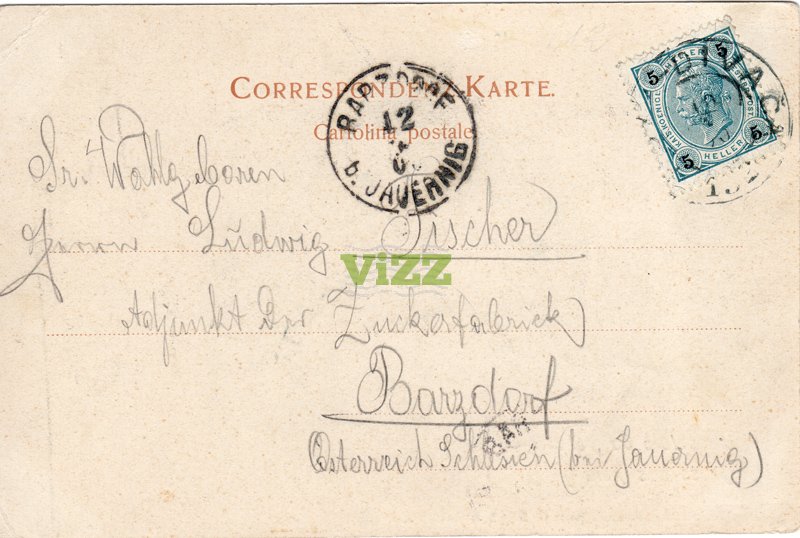 CORRESPONDENZ-KARTE.
Cartolina postale
BARZDORF
12
b. JAUERNIG
DIVAČA
5 5
5 5
HELLER
Sr. Wohlgeboren
Herrn Ludwig Fischer
Adjunkt der Zuckerfabrick
ViZZ
Barzdorf
Österreich Schlesien (bei Jauernig)
BAR